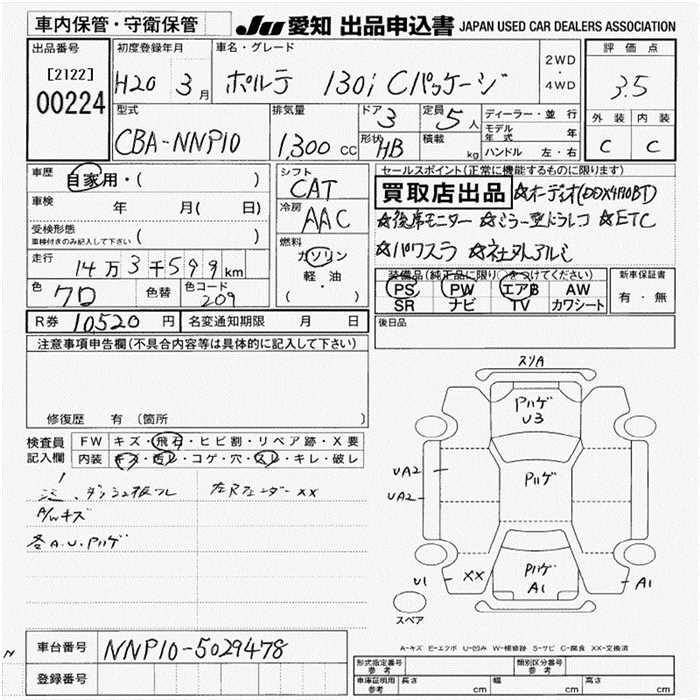 車内保管・守衛保管
JU 愛知 出品申込書 JAPAN USED CAR DEALERS ASSOCIATION
出品番号
[2122]
00224
初度登録年月
H20 3月
車名・グレード
ポルテ 130i Cパッケージ
2WD
・
4WD
評価点
3.5
外装 内装
C C
型式
CBA-NNP10
排気量
1,300 cc
ドア 3
形状 HB
定員 5人
積載 kg
ディーラー・並行
モデル年式 年
ハンドル 左・右
車歴 自家用・( )
車検 年 月( 日)
受検形態
車検付きのみ記入して下さい ( )
走行 14万3千599km
色 クロ 色替 色コード 209
シフト
CAT
冷房
AAC
燃料
ガソリン
軽・油
( )
セールスポイント(正常に機能するものに限ります)
買取店出品 ☆オーディオ(DDX4190BT)
☆後席モニター ☆ミラー型ドラレコ ☆ETC
☆パワスラ ☆社外アルミ
装備品(純正品に限り○をつけてください)
PS PW エアB AW
SR ナビ TV カワシート
新車保証書
有・無
R券 10,520円 名変通知期限 月 日
後日品
注意事項申告欄(不具合内容等は具体的に記入して下さい)
修復歴 有 (箇所 )
検査員
記入欄
FW キズ・飛石・ヒビ割・リペア跡・X要
内装 キズ・汚レ・コゲ・穴・スレ・キレ・破レ
A/Wキズ
各A.U.Pハゲ
スリA
Pハゲ
U3
UA2
UA2
Pハゲ
Pハゲ
A1
U1 XX
A1
スペア
A-キズ E-エクボ U-凹み W-補修跡 S-サビ C-腐食 XX-交換済
N
車台番号 NNP10-5029478
登録番号
形式指定番号
参考
類別区分番号
参考
車庫証明用
参考
長さ cm 幅 cm 高さ cm